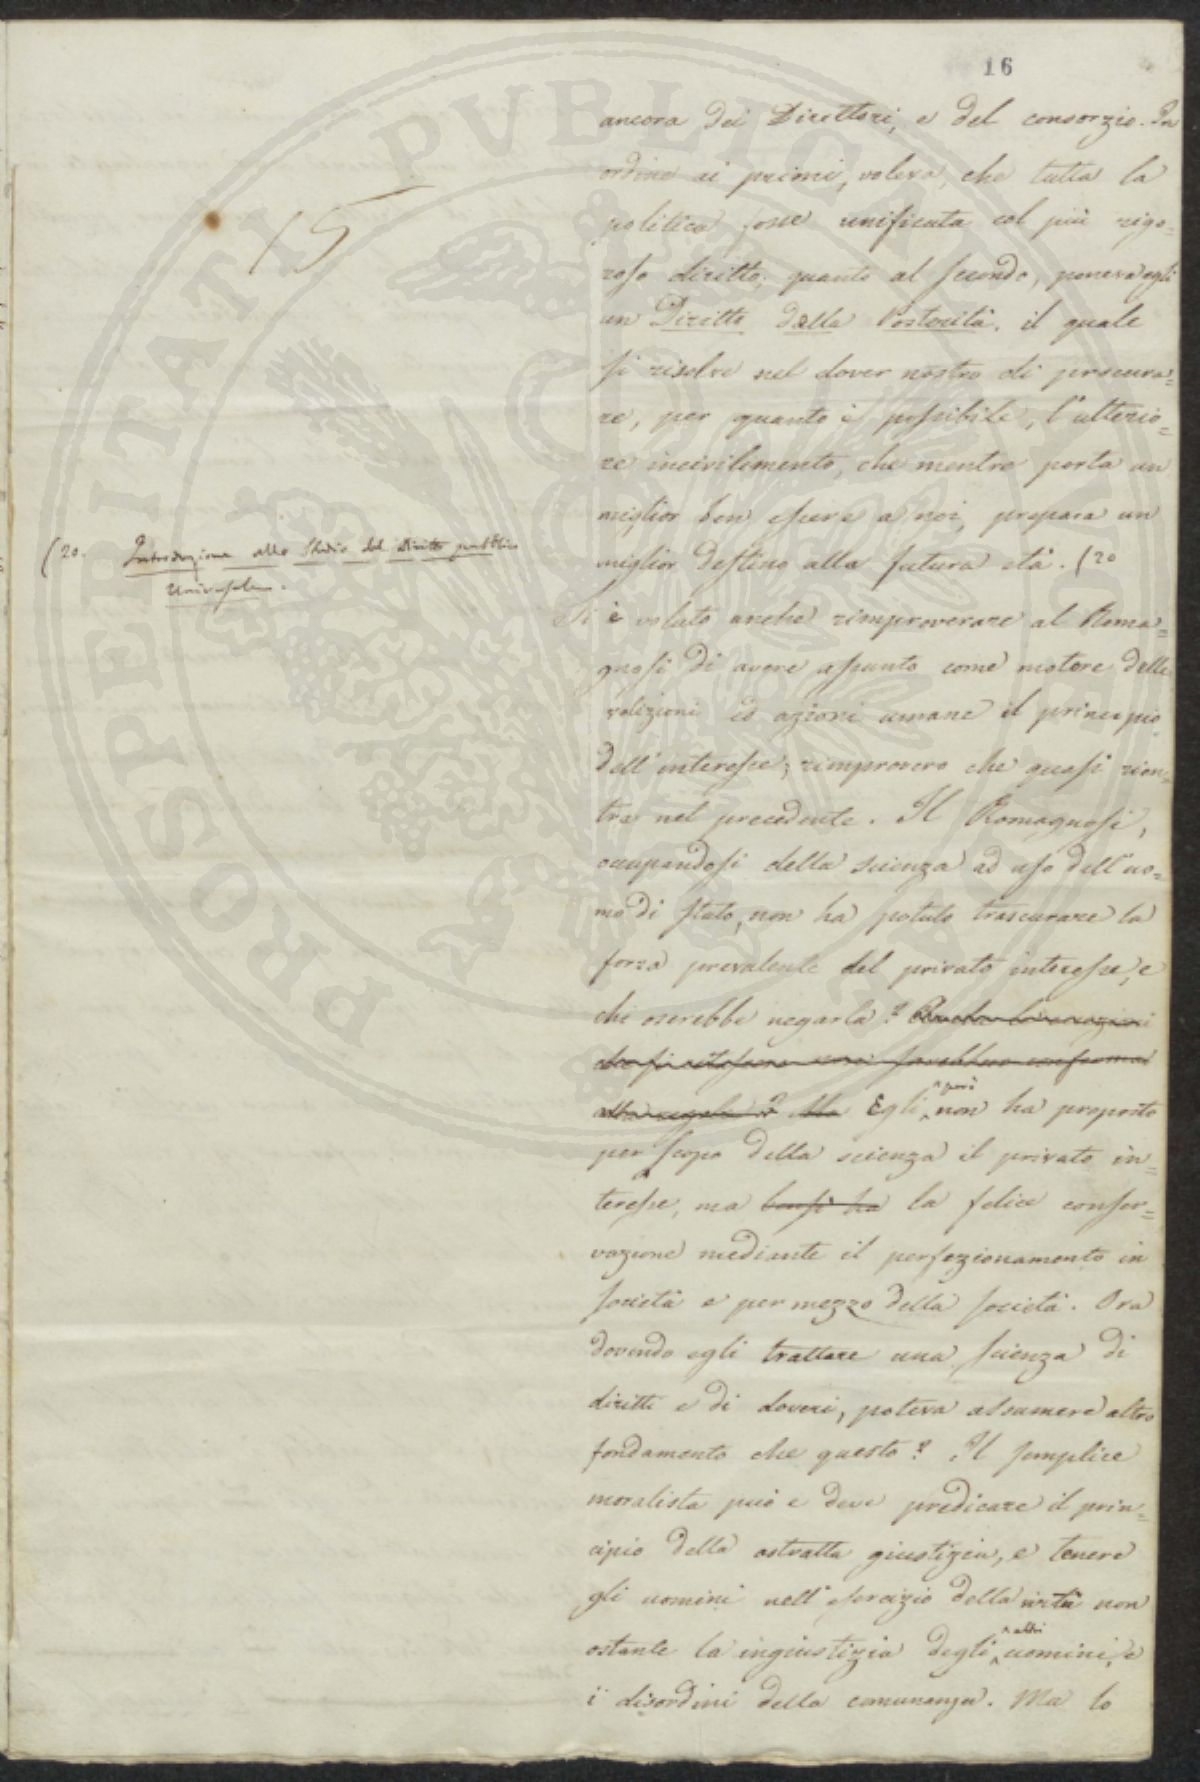 16
15
ancora dei Direttori, e del consorzio. In
ordine ai primi, voleva, che tutta la
politica fosse unificata col più rigo=
roso diritto; quanto al secondo, poneva egli
un Diritto della Posterità, il quale
si risolve nel dover nostro di procura=
re, per quanto è possibile, l'ulterio=
re incivilimento, che mentre porta un
miglior ben essere a noi, prepara un
miglior destino alla futura età. (20
(20. Introduzione allo Studio del Diritto pubblico
Universale.
Si è voluto anche rimproverare al Roma=
gnosi di avere assunto come motore delle
volizioni ed azioni umane il principio
dell'interesse; rimprovero che quasi rien=
tra nel precedente. Il Romagnosi,
occupandosi della scienza ad uso dell'uo=
mo di stato, non ha potuto trascurare la
forza prevalente del privato interesse, e
chi oserebbe negarla?
alla regola? Ma Egli, però non ha proposto
per scopo della scienza il privato in=
teresse, ma bensì ha la felice conser=
vazione mediante il perfezionamento in
società e per mezzo della società. Ora
dovendo egli trattare una scienza di
diritti e di doveri, poteva assumere altro
fondamento che questo? Il semplice
moralista può e deve predicare il prin=
cipio della astratta giustizia, e tenere
gli uomini nell'esercizio della virtù non
ostante la ingiustizia degli altri uomini, e
i disordini della comunanza. Ma lo
PROSPERITATI PVBLICAE